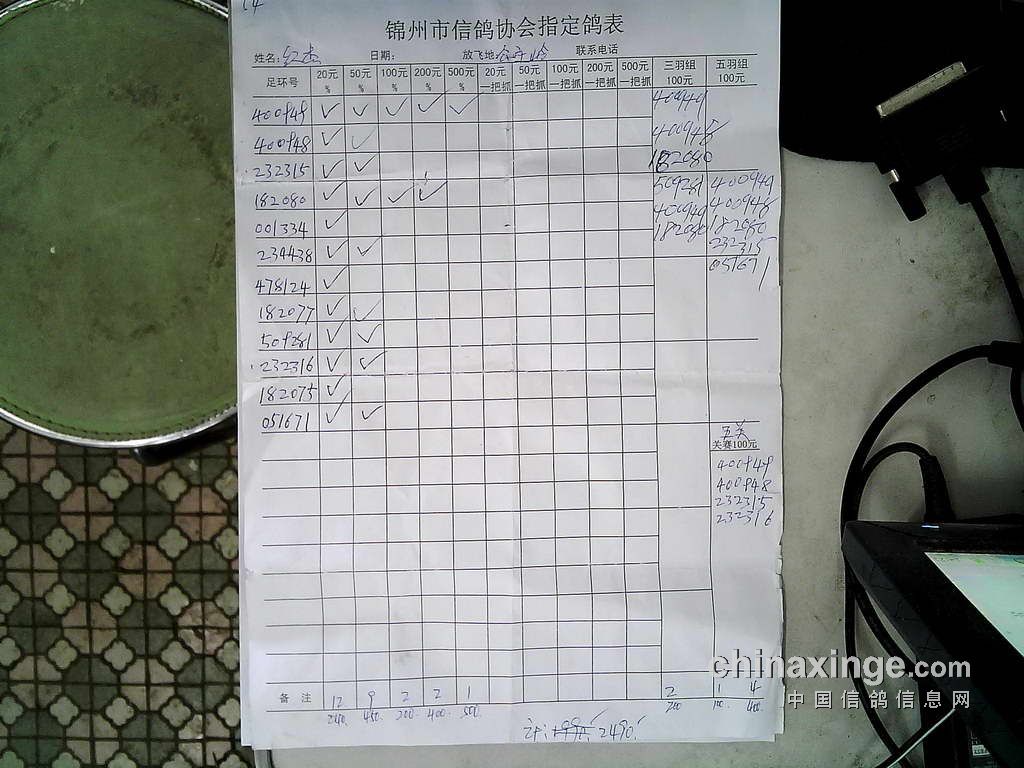 14
锦州市信鸽协会指定鸽表
姓名: 红杰 日期: 放飞地: 联系电话
足环号 20元% 50元% 100元% 200元% 500元% 20元一把抓 50元一把抓 100元一把抓 200元一把抓 500元一把抓 三羽组100元 五羽组100元
400949 ✓ ✓ ✓ ✓ ✓ 400949
400948 ✓ ✓ 400948
232315 ✓ ✓ 182080
182080 ✓ ✓ ✓ ✓ 509281 400949
400949 400948
001334 ✓ 182080 182080
234438 ✓ ✓ 232315
478124 ✓ 051671
182077 ✓ ✓
509281 ✓ ✓
232316 ✓ ✓
182075 ✓
051671 ✓ ✓
五关
关赛100元
400949
400948
232315
232316
备注 12 9 2 2 1 2 1 4
240. 450. 200. 400. 500. 200 100. 400.
2490.
chinaxinge.com
中国信鸽信息网